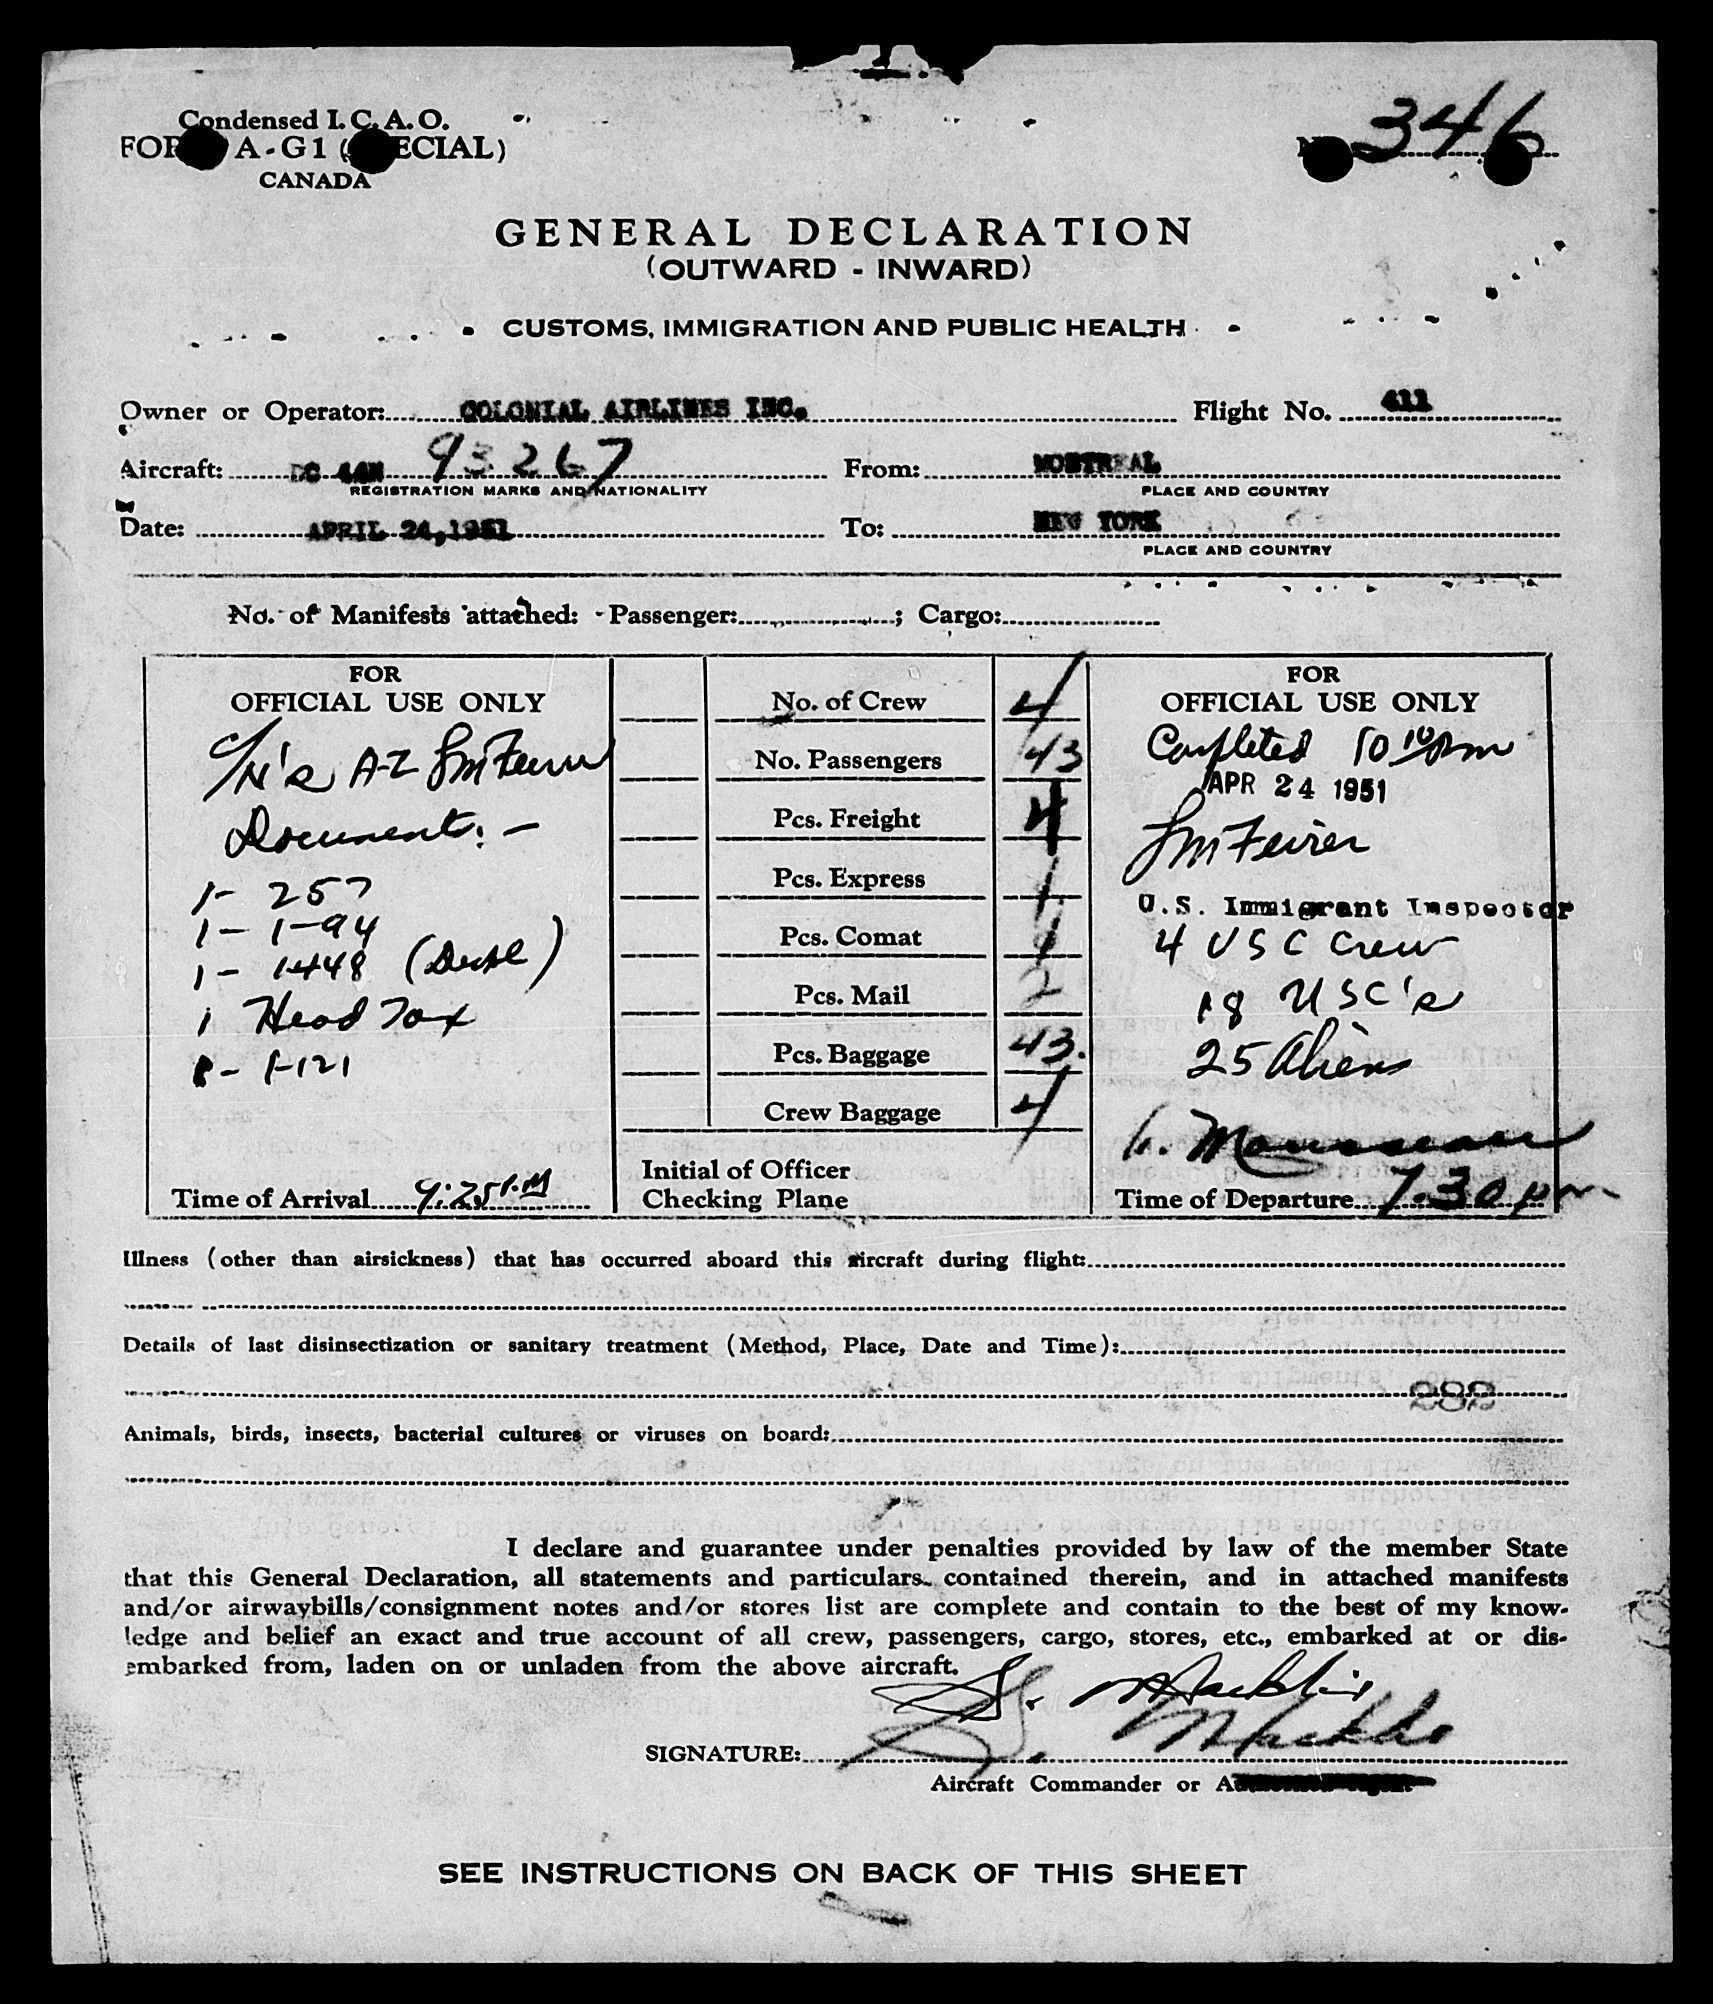 Condensed I. C. A. O.
A - G 1 (
CANADA
346
GENERAL DECLARATION
(OUTWARD - INWARD)
CUSTOMS, IMMIGRATION AND PUBLIC HEALTH
Owner or Operator: COLONIAL AIRLINES INC. Flight No. 411
Aircraft: DC 44N 93267 From: MONTREAL
REGISTRATION MARKS AND NATIONALITY PLACE AND COUNTRY
Date: APRIL 24, 1951 To: NEW YORK
PLACE AND COUNTRY
No. of Manifests attached: - Passenger: ; Cargo:
FOR OFFICIAL USE ONLY
C/N's A-Z
Documents: -
1- 257
1- I-94
1- I-448 (Dupl)
1 Head Tax
1- I-121
Time of Arrival 9:25 P.M
No. of Crew 4
No. Passengers 43
Pcs. Freight 4
Pcs. Express 1
Pcs. Comat 1
Pcs. Mail 2
Pcs. Baggage 43.
Crew Baggage 4
Initial of Officer
Checking Plane
FOR OFFICIAL USE ONLY
Completed 10 10 pm
APR 24 1951
U.S. Immigrant Inspector
4 USC Crew
18 USC's
25 Aliens
Time of Departure 7.30 pm
Illness (other than airsickness) that has occurred aboard this aircraft during flight:
Details of last disinsectization or sanitary treatment (Method, Place, Date and Time):
282
Animals, birds, insects, bacterial cultures or viruses on board:
I declare and guarantee under penalties provided by law of the member State
that this General Declaration, all statements and particulars contained therein, and in attached manifests
and/or airwaybills/consignment notes and/or stores list are complete and contain to the best of my know-
ledge and belief an exact and true account of all crew, passengers, cargo, stores, etc., embarked at or dis-
embarked from, laden on or unladen from the above aircraft.
SIGNATURE:
Aircraft Commander or
SEE INSTRUCTIONS ON BACK OF THIS SHEET